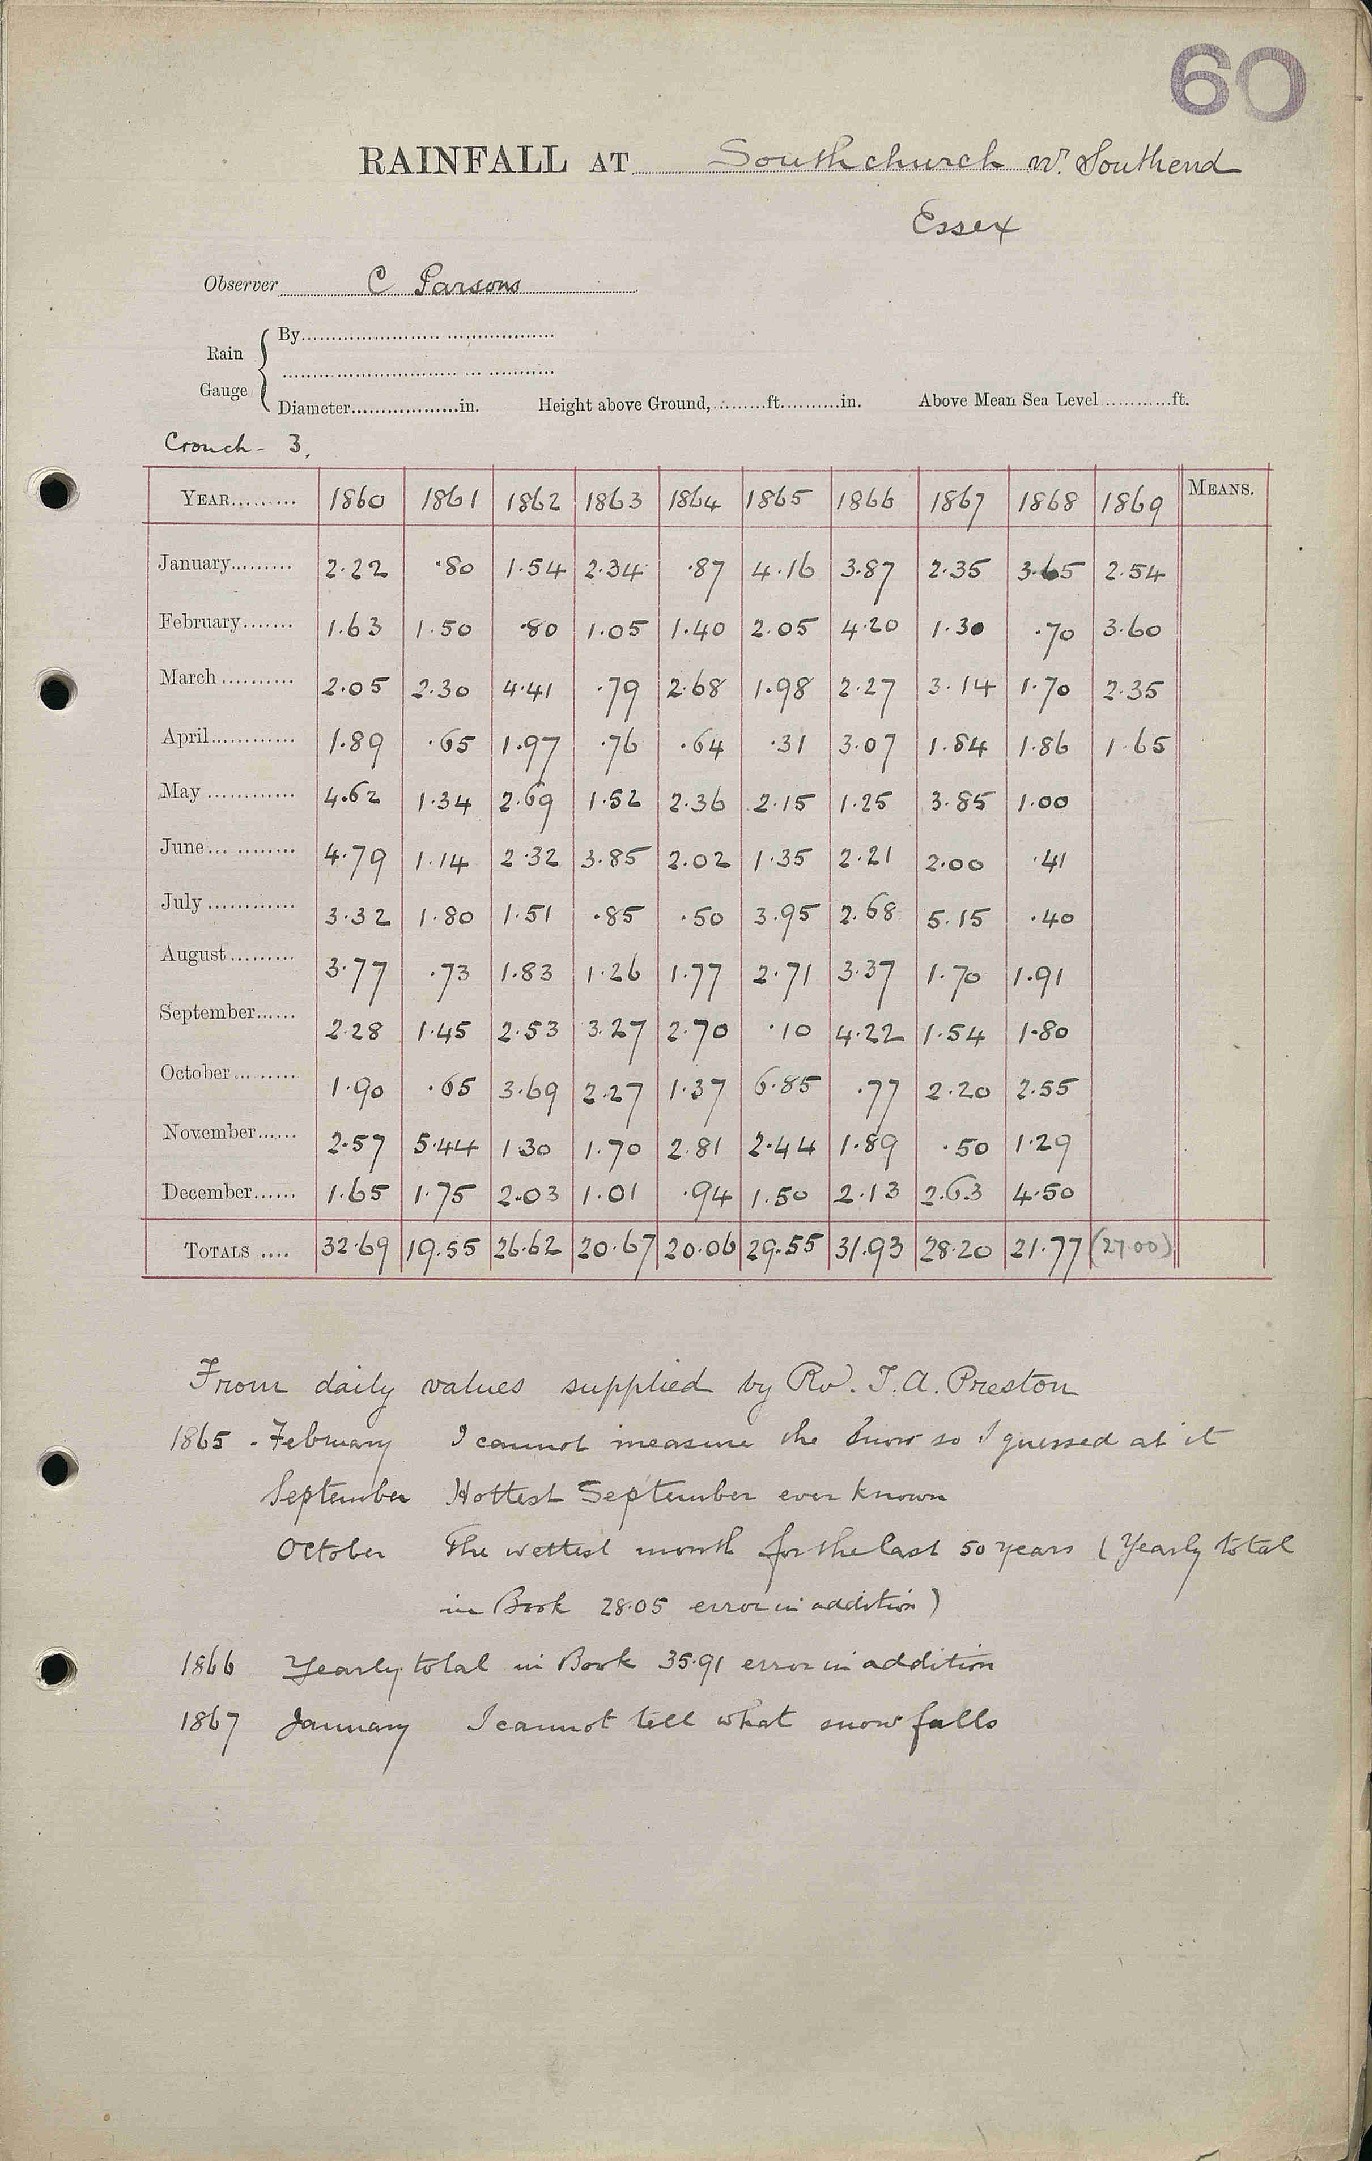 60
RAINFALL AT Southchurch nr. Southend
Essex
Observer C Parsons
Rain Gauge { By
Diameter in. Height above Ground, ft. in. Above Mean Sea Level ft.
Crouch - 3.
YEAR 1860 1861 1862 1863 1864 1865 1866 1867 1868 1869 MEANS.
January 2.22 .80 1.54 2.34 .87 4.16 3.87 2.35 3.65 2.54
February 1.63 1.50 .80 1.05 1.40 2.05 4.20 1.30 .70 3.60
March 2.05 2.30 4.41 .79 2.68 1.98 2.27 3.14 1.70 2.35
April 1.89 .65 1.97 .76 .64 .31 3.07 1.84 1.86 1.65
May 4.62 1.34 2.69 1.52 2.36 2.15 1.25 3.85 1.00
June 4.79 1.14 2.32 3.85 2.02 1.35 2.21 2.00 .41
July 3.32 1.80 1.51 .85 .50 3.95 2.68 5.15 .40
August 3.77 .73 1.83 1.26 1.77 2.71 3.37 1.70 1.91
September 2.28 1.45 2.53 3.27 2.70 .10 4.22 1.54 1.80
October 1.90 .65 3.69 2.27 1.37 6.85 .77 2.20 2.55
November 2.57 5.44 1.30 1.70 2.81 2.44 1.89 .50 1.29
December 1.65 1.75 2.03 1.01 .94 1.50 2.13 2.63 4.50
TOTALS 32.69 19.55 26.62 20.67 20.06 29.55 31.93 28.20 21.77 (27.00)
From daily values supplied by Rev. T. A. Preston
1865 - February I cannot measure the snow so I guessed at it
September Hottest September ever known
October The wettest month for the last 50 years (Yearly total
in Book 28.05 error in addition)
1866 Yearly total in Book 35.91 error in addition
1867 January I cannot tell what snow falls